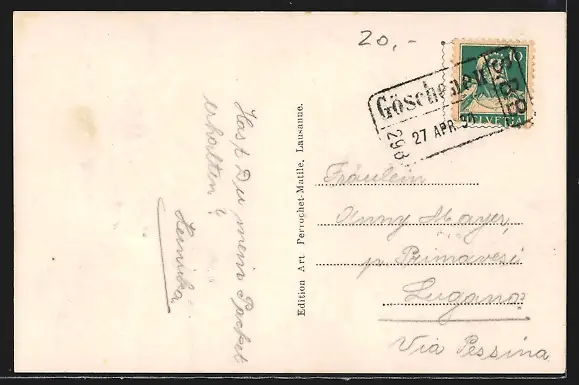 20,-
10
HELVETIA
Göschenen
27 APR 30
Hast Du mein Packet
erhalten?
Edition Art. Perrochet-Matile, Lausanne.
Fräulein
Anny Mayer,
p. Primavesi
Lugano
Via Pessina